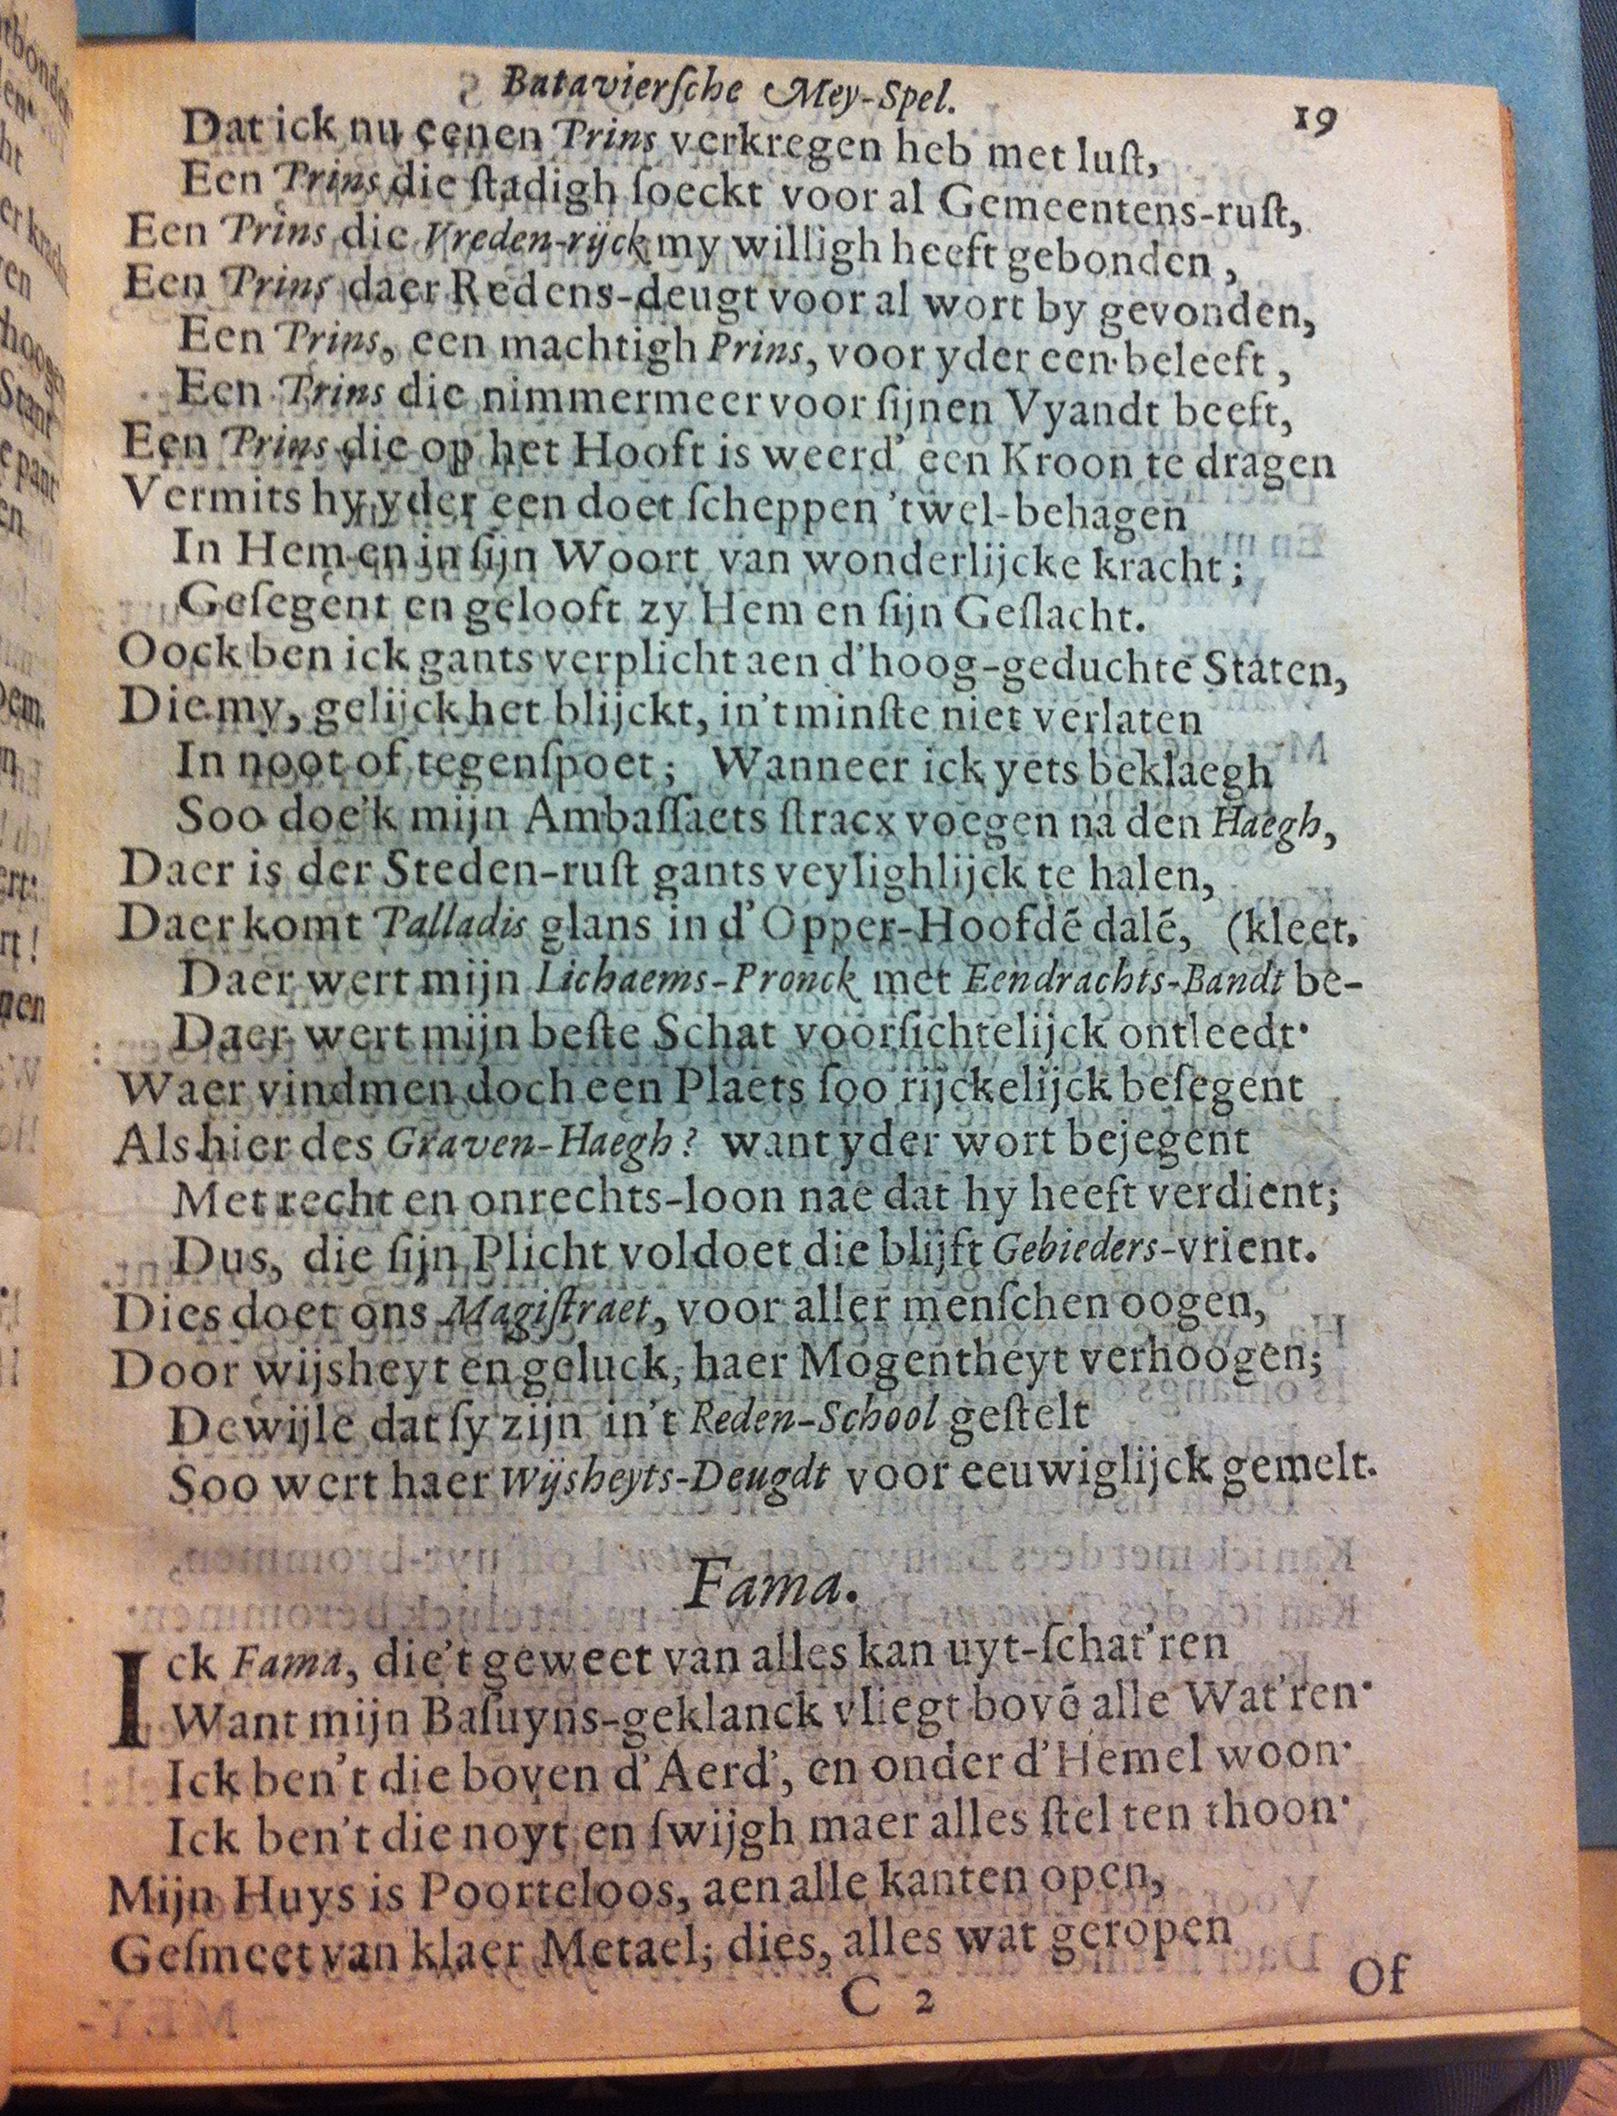 Bataviersche Mey-Spel. 19
Dat ick nu eenen Prins verkregen heb met lust,
Een Prins die stadigh soeckt voor al Gemeentens-rust,
Een Prins die Vreden-rijck my willigh heeft gebonden,
Een Prins daer Redens-deugt voor al wort by gevonden,
Een Prins, een machtigh Prins, voor yder een beleeft,
Een Prins die nimmermeer voor sijnen Vyandt beeft,
Een Prins die op het Hooft is weerd' een Kroon te dragen
Vermits hy yder een doet scheppen 'twel-behagen
In Hem en in sijn Woort van wonderlijcke kracht;
Gesegent en gelooft zy Hem en sijn Geslacht.
Oock ben ick gants verplicht aen d'hoog-geduchte Staten,
Die my, gelijck het blijckt, in't minste niet verlaten
In noot of tegenspoet; Wanneer ick yets beklaegh
Soo doe'k mijn Ambassaets stracx voegen na den Haegh,
Daer is der Steden-rust gants veylighlijck te halen,
Daer komt Palladis glans in d'Opper-Hoofdē dalē, (kleet.
Daer wert mijn Lichaems-Pronck met Eendrachts-Bandt be-
Daer wert mijn beste Schat voorsichtelijck ontleedt·
Waer vindmen doch een Plaets soo rijckelijck besegent
Als hier des Graven-Haegh? want yder wort bejegent
Met recht en onrechts-loon nae dat hy heeft verdient;
Dus, die sijn Plicht voldoet die blijft Gebieders-vrient.
Dies doet ons Magistraet, voor aller menschen oogen,
Door wijsheyt en geluck, haer Mogentheyt verhoogen;
Dewijle dat sy zijn in't Reden-School gestelt
Soo wert haer Wijsheyts-Deugdt voor eeuwiglijck gemelt.
Fama.
Ick Fama, die't geweet van alles kan uyt-schat'ren
Want mijn Basuyns-geklanck vliegt bovē alle Wat'ren·
Ick ben't die boven d'Aerd', en onder d'Hemel woon·
Ick ben't die noyt en swijgh maer alles stel ten thoon·
Mijn Huys is Poorteloos, aen alle kanten open,
Gesmeet van klaer Metael; dies, alles wat geropen
C 2 Of